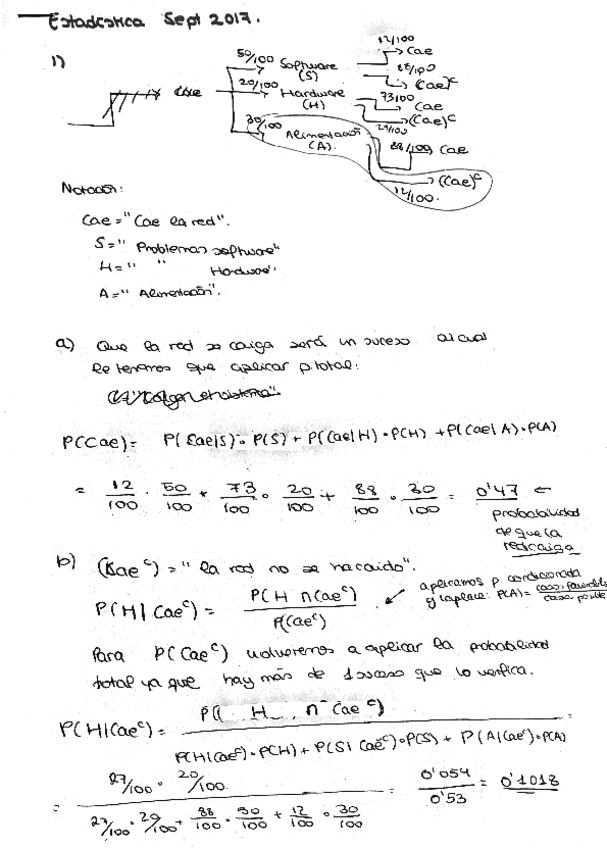 Estadística Sept 2017.
1)
50/100 Software (S)
12/100 Cae
88/100 (Cae)^c
20/100 Hardware (H)
73/100 Cae
(Cae)^c
30/100 Alimentación (A).
88/100 Cae
12/100. (Cae)^c
Notación:
Cae = "Cae la red".
S = " Problemas software"
H = " " Hardware".
A = " Alimentación".
a) Que la red se caiga será un suceso al cual
le tenemos que aplicar p.total:
P(Cae) = P(Cae|S) · P(S) + P(Cae|H) · P(H) + P(Cae|A) · P(A)
= 12/100 · 50/100 + 73/100 · 20/100 + 88/100 · 30/100 = 0'47 ←
probabilidad
de que la
red caiga
b) (Cae^c) = " la red no se ha caído".
P(H|Cae^c) = P(H ∩ Cae^c) / P(Cae^c)
aplicamos p. condicionada
y Laplace: P(A) =
Para P(Cae^c) volveremos a aplicar la probabilidad
total ya que hay más de 1 suceso que lo verifica.
P(H|Cae^c) = P( H ∩ Cae^c) / P(H|Cae^c) · P(H) + P(S|Cae^c) · P(S) + P(A|Cae^c) · P(A) =
= 27/100 · 20/100 / 27/100 · 20/100 + 88/100 · 50/100 + 12/100 · 30/100 = 0'054 / 0'53 = 0'1018